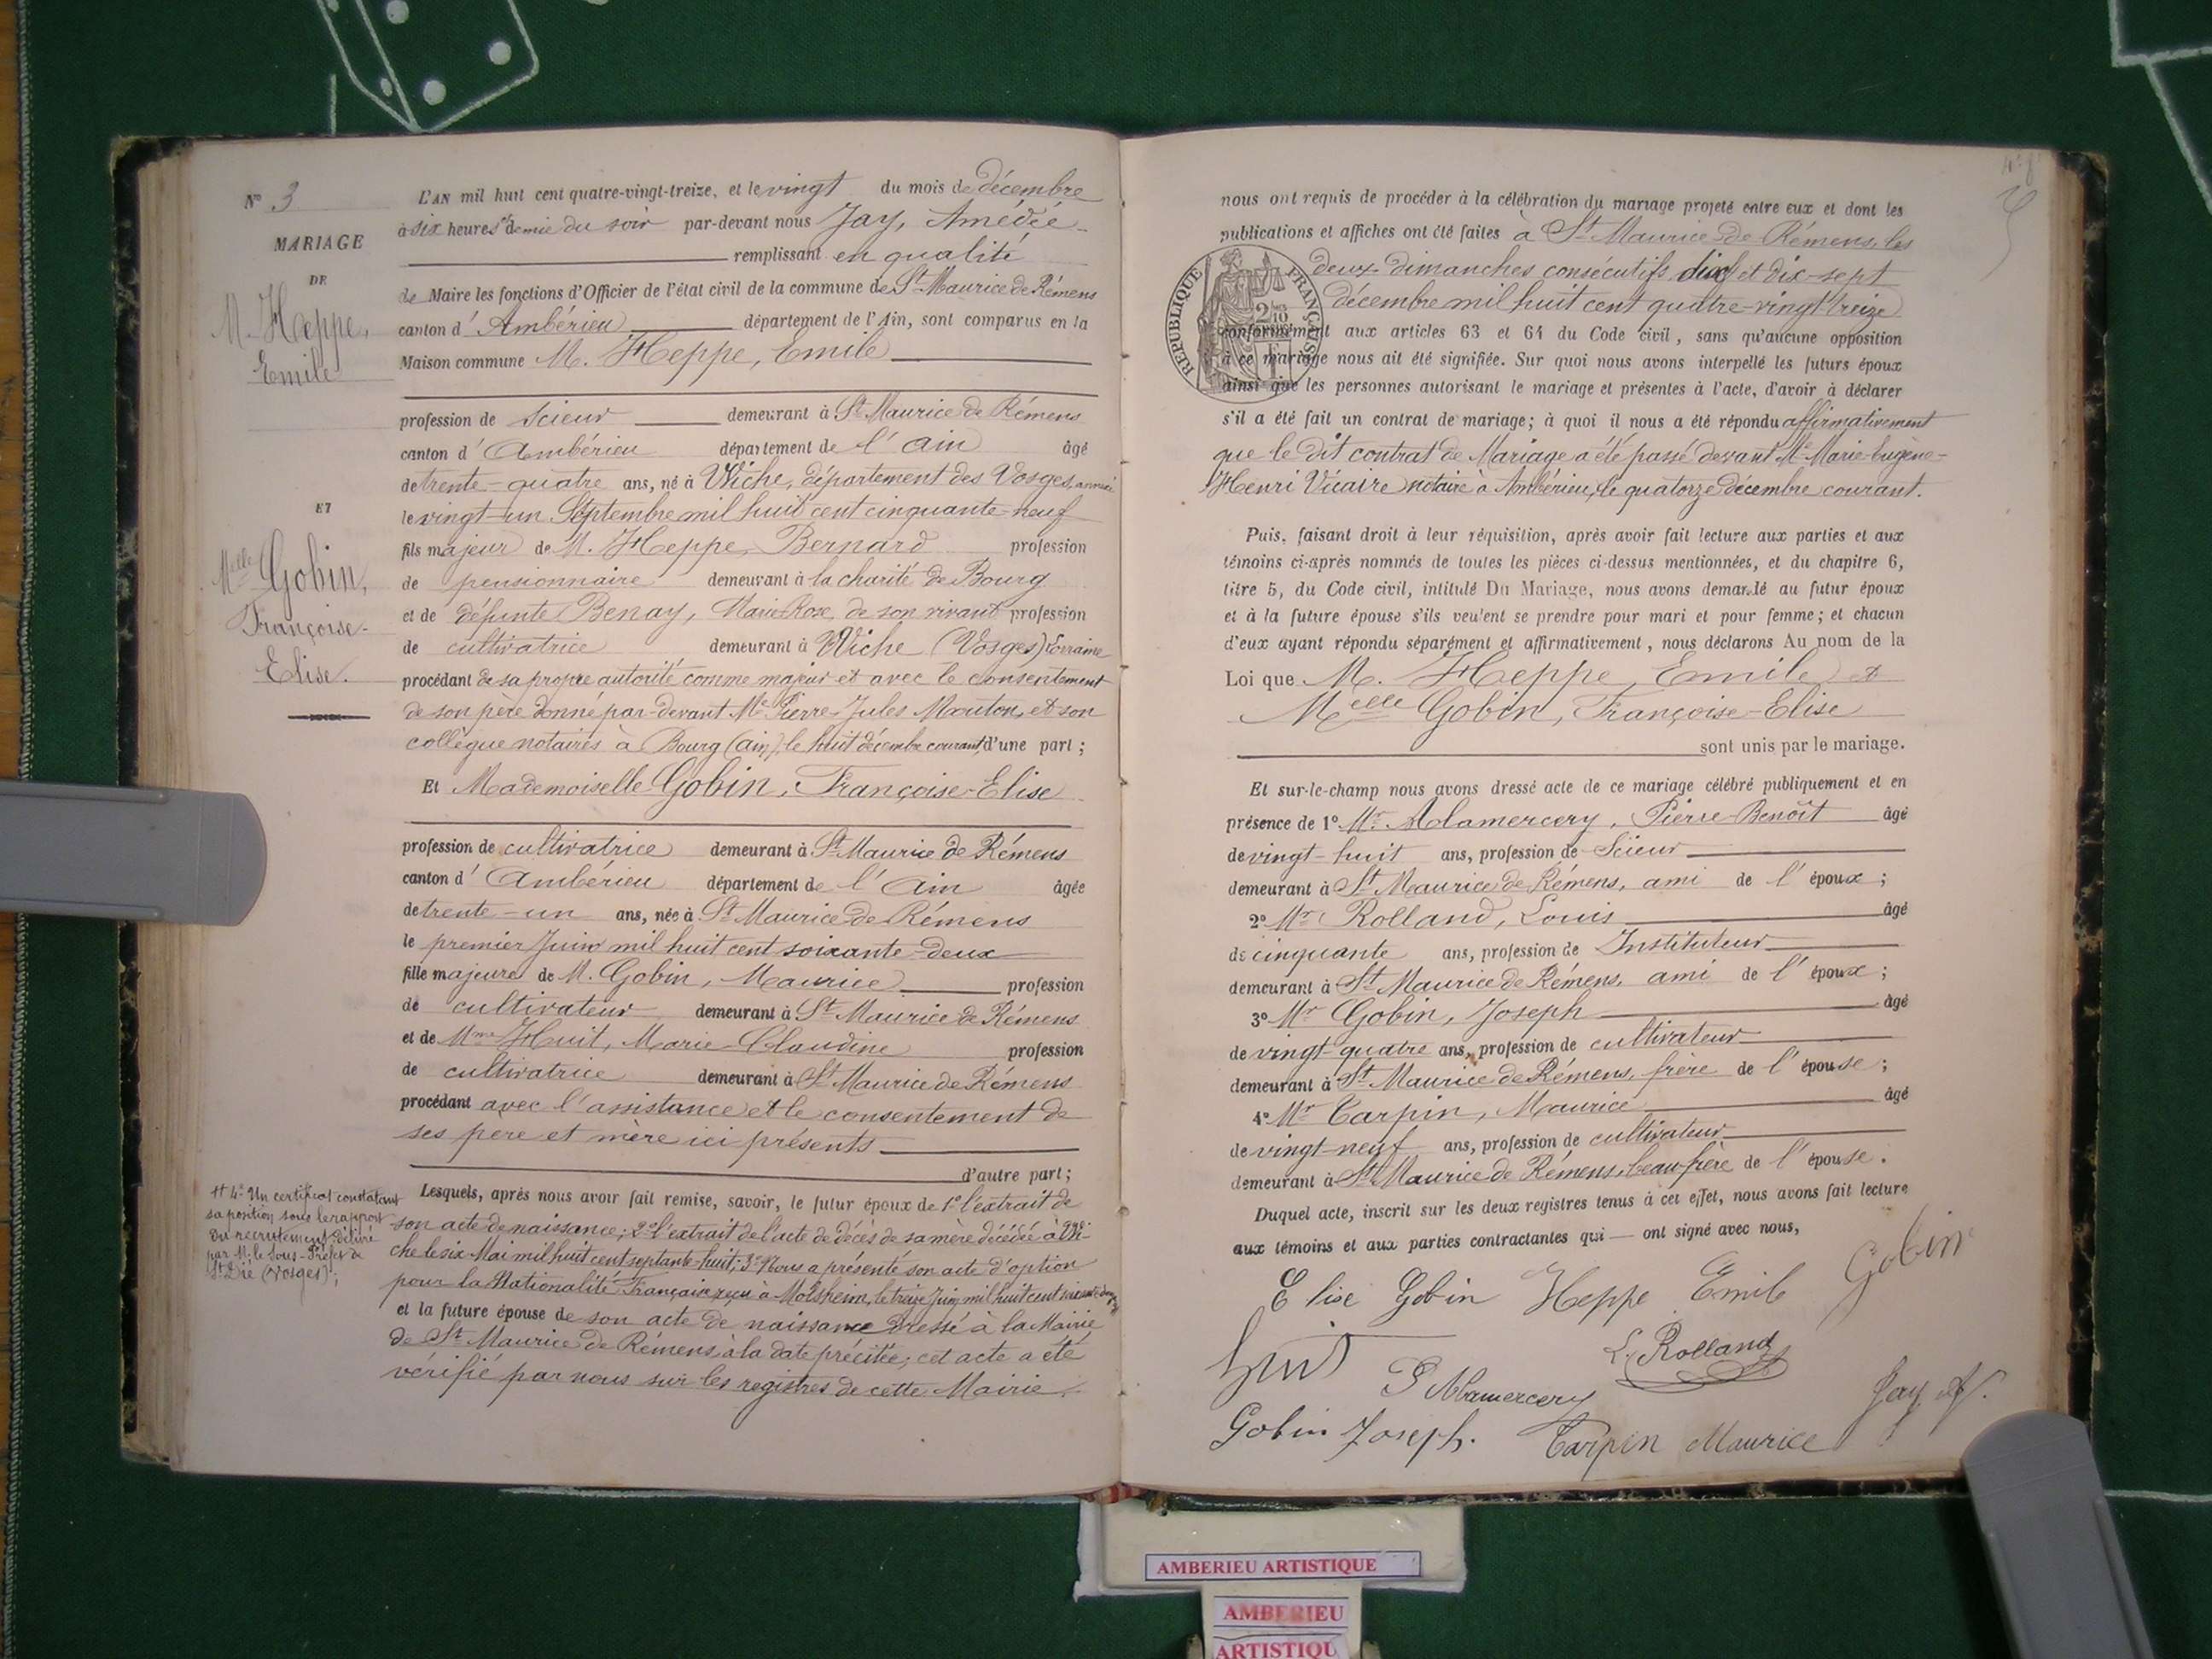 N° 3
MARIAGE
DE
M. Heppe,
Emile
ET
Melle Gobin,
Françoise-
Elise.
L'AN mil huit cent quatre-vingt-treize, et le vingt du mois de décembre
à six heures et demie du soir par-devant nous Jay, Amédée
remplissant en qualité
de Maire les fonctions d'Officier de l'état civil de la commune de St Maurice de Rémens
canton d'Ambérieu département de l'Ain, sont comparus en la
Maison commune M. Heppe, Emile
profession de Scieur demeurant à St Maurice de Rémens
canton d'Ambérieu département de l'Ain âgé
de trente-quatre ans, né à Wiche, département des Vosges,
le vingt-un Septembre mil huit cent cinquante-neuf
fils majeur de M. Heppe, Bernard profession
de pensionnaire demeurant à la charité de Bourg
et de défunte Benay, Marie-Rose, de son vivant profession
de cultivatrice demeurant à Wiche (Vosges) Lorraine
procédant de sa propre autorité comme majeur et avec le consentement
de son père donné par-devant Me Pierre-Jules Mouton, et son
collègue notaires à Bourg (Ain), le huit décembre courant, d'une part ;
Et Mademoiselle Gobin, Françoise-Elise
profession de cultivatrice demeurant à St Maurice de Rémens
canton d'Ambérieu département de l'Ain âgée
de trente-un ans, née à St Maurice de Rémens
le premier Juin mil huit cent soixante-deux
fille majeure de M. Gobin, Maurice profession
de cultivateur demeurant à St Maurice de Rémens
et de Mme Huit, Marie-Claudine profession
de cultivatrice demeurant à St Maurice de Rémens
procédant avec l'assistance et le consentement de
ses père et mère ici présents
d'autre part ;
Lesquels, après nous avoir fait remise, savoir, le futur époux de 1° l'extrait de
son acte de naissance ; 2° l'extrait de l'acte de décès de sa mère décédée à Wi-
che le six Mai mil huit cent septante-huit ; 3° Nous a présenté son acte d'option
pour la Nationalité Française reçu à Molsheim, le treize Juin mil huit cent
et la future épouse de son acte de naissance dressé à la Mairie
de St Maurice de Rémens, à la date précitée ; cet acte a été
vérifié par nous sur les registres de cette Mairie.
4° Un certificat constatant
sa position sous le rapport
du recrutement délivré
par M. le Sous-Préfet de
St Dié (Vosges) ;
nous ont requis de procéder à la célébration du mariage projeté entre eux et dont les
publications et affiches ont été faites à St Maurice de Rémens, les
deux dimanches consécutifs dix et dix-sept
décembre mil huit cent quatre-vingt-treize
RÉPUBLIQUE FRANÇAISE
conformément aux articles 63 et 64 du Code civil, sans qu'aucune opposition
à ce mariage nous ait été signifiée. Sur quoi nous avons interpellé les futurs époux
ainsi que les personnes autorisant le mariage et présentes à l'acte, d'avoir à déclarer
s'il a été fait un contrat de mariage ; à quoi il nous a été répondu affirmativement
que le dit contrat de Mariage a été passé devant Me Marie-Eugène-
Henri Vicaire notaire à Ambérieu, le quatorze décembre courant.
Puis, faisant droit à leur réquisition, après avoir fait lecture aux parties et aux
témoins ci-après nommés de toutes les pièces ci-dessus mentionnées, et du chapitre 6,
titre 5, du Code civil, intitulé Du Mariage, nous avons demandé au futur époux
et à la future épouse s'ils veulent se prendre pour mari et pour femme ; et chacun
d'eux ayant répondu séparément et affirmativement, nous déclarons Au nom de la
Loi que M. Heppe, Emile et
Melle Gobin, Françoise-Elise
sont unis par le mariage.
Et sur-le-champ nous avons dressé acte de ce mariage célébré publiquement et en
présence de 1° Mr Alamercery, Pierre-Benoît âgé
de vingt-huit ans, profession de Scieur
demeurant à St Maurice de Rémens, ami de l'époux ;
2° Mr Rolland, Louis âgé
de cinquante ans, profession de Instituteur
demeurant à St Maurice de Rémens, ami de l'époux ;
3° Mr Gobin, Joseph âgé
de vingt-quatre ans, profession de cultivateur
demeurant à St Maurice de Rémens, frère de l'épouse ;
4° Mr Tarpin, Maurice âgé
de vingt-neuf ans, profession de cultivateur
demeurant à St Maurice de Rémens, beau-frère de l'épouse.
Duquel acte, inscrit sur les deux registres tenus à cet effet, nous avons fait lecture
aux témoins et aux parties contractantes qui ont signé avec nous,
Elise Gobin Heppe Emile Gobin
huit L. Rolland
P Alamercery Jay A.
Gobin Joseph. Tarpin Maurice
AMBERIEU ARTISTIQUE
AMBERIEU
ARTISTIQU